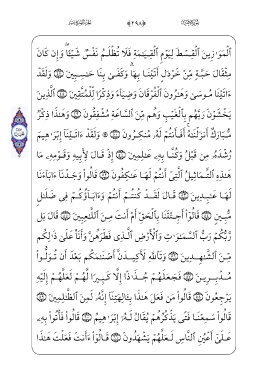 ٱلْمَوَٰزِينَ ٱلْقِسْطَ لِيَوْمِ ٱلْقِيَٰمَةِ فَلَا تُظْلَمُ نَفْسٌ شَيْـًٔا ۖ وَإِن كَانَ
مِثْقَالَ حَبَّةٍ مِّنْ خَرْدَلٍ أَتَيْنَا بِهَا وَكَفَىٰ بِنَا حَٰسِبِينَ ۝ وَلَقَدْ
ءَاتَيْنَا مُوسَىٰ وَهَٰرُونَ ٱلْفُرْقَانَ وَضِيَآءً وَذِكْرًا لِّلْمُتَّقِينَ ۝ ٱلَّذِينَ
يَخْشَوْنَ رَبَّهُم بِٱلْغَيْبِ وَهُم مِّنَ ٱلسَّاعَةِ مُشْفِقُونَ ۝ وَهَٰذَا ذِكْرٌ
مُّبَارَكٌ أَنزَلْنَٰهُ أَفَأَنتُمْ لَهُۥ مُنكِرُونَ ۝ ۞ وَلَقَدْ ءَاتَيْنَآ إِبْرَٰهِيمَ
رُشْدَهُۥ مِن قَبْلُ وَكُنَّا بِهِۦ عَٰلِمِينَ ۝ إِذْ قَالَ لِأَبِيهِ وَقَوْمِهِۦ مَا
هَٰذِهِ ٱلتَّمَاثِيلُ ٱلَّتِىٓ أَنتُمْ لَهَا عَٰكِفُونَ ۝ قَالُوا۟ وَجَدْنَآ ءَابَآءَنَا
لَهَا عَٰبِدِينَ ۝ قَالَ لَقَدْ كُنتُمْ أَنتُمْ وَءَابَآؤُكُمْ فِى ضَلَٰلٍ
مُّبِينٍ ۝ قَالُوٓا۟ أَجِئْتَنَا بِٱلْحَقِّ أَمْ أَنتَ مِنَ ٱللَّٰعِبِينَ ۝ قَالَ بَل
رَّبُّكُمْ رَبُّ ٱلسَّمَٰوَٰتِ وَٱلْأَرْضِ ٱلَّذِى فَطَرَهُنَّ وَأَنَا۠ عَلَىٰ ذَٰلِكُم
مِّنَ ٱلشَّٰهِدِينَ ۝ وَتَٱللَّهِ لَأَكِيدَنَّ أَصْنَٰمَكُم بَعْدَ أَن تُوَلُّوا۟
مُدْبِرِينَ ۝ فَجَعَلَهُمْ جُذَٰذًا إِلَّا كَبِيرًا لَّهُمْ لَعَلَّهُمْ إِلَيْهِ
يَرْجِعُونَ ۝ قَالُوا۟ مَن فَعَلَ هَٰذَا بِـَٔالِهَتِنَآ إِنَّهُۥ لَمِنَ ٱلظَّٰلِمِينَ ۝
قَالُوا۟ سَمِعْنَا فَتًى يَذْكُرُهُمْ يُقَالُ لَهُۥٓ إِبْرَٰهِيمُ ۝ قَالُوا۟ فَأْتُوا۟ بِهِۦ
عَلَىٰٓ أَعْيُنِ ٱلنَّاسِ لَعَلَّهُمْ يَشْهَدُونَ ۝ قَالُوٓا۟ ءَأَنتَ فَعَلْتَ هَٰذَا